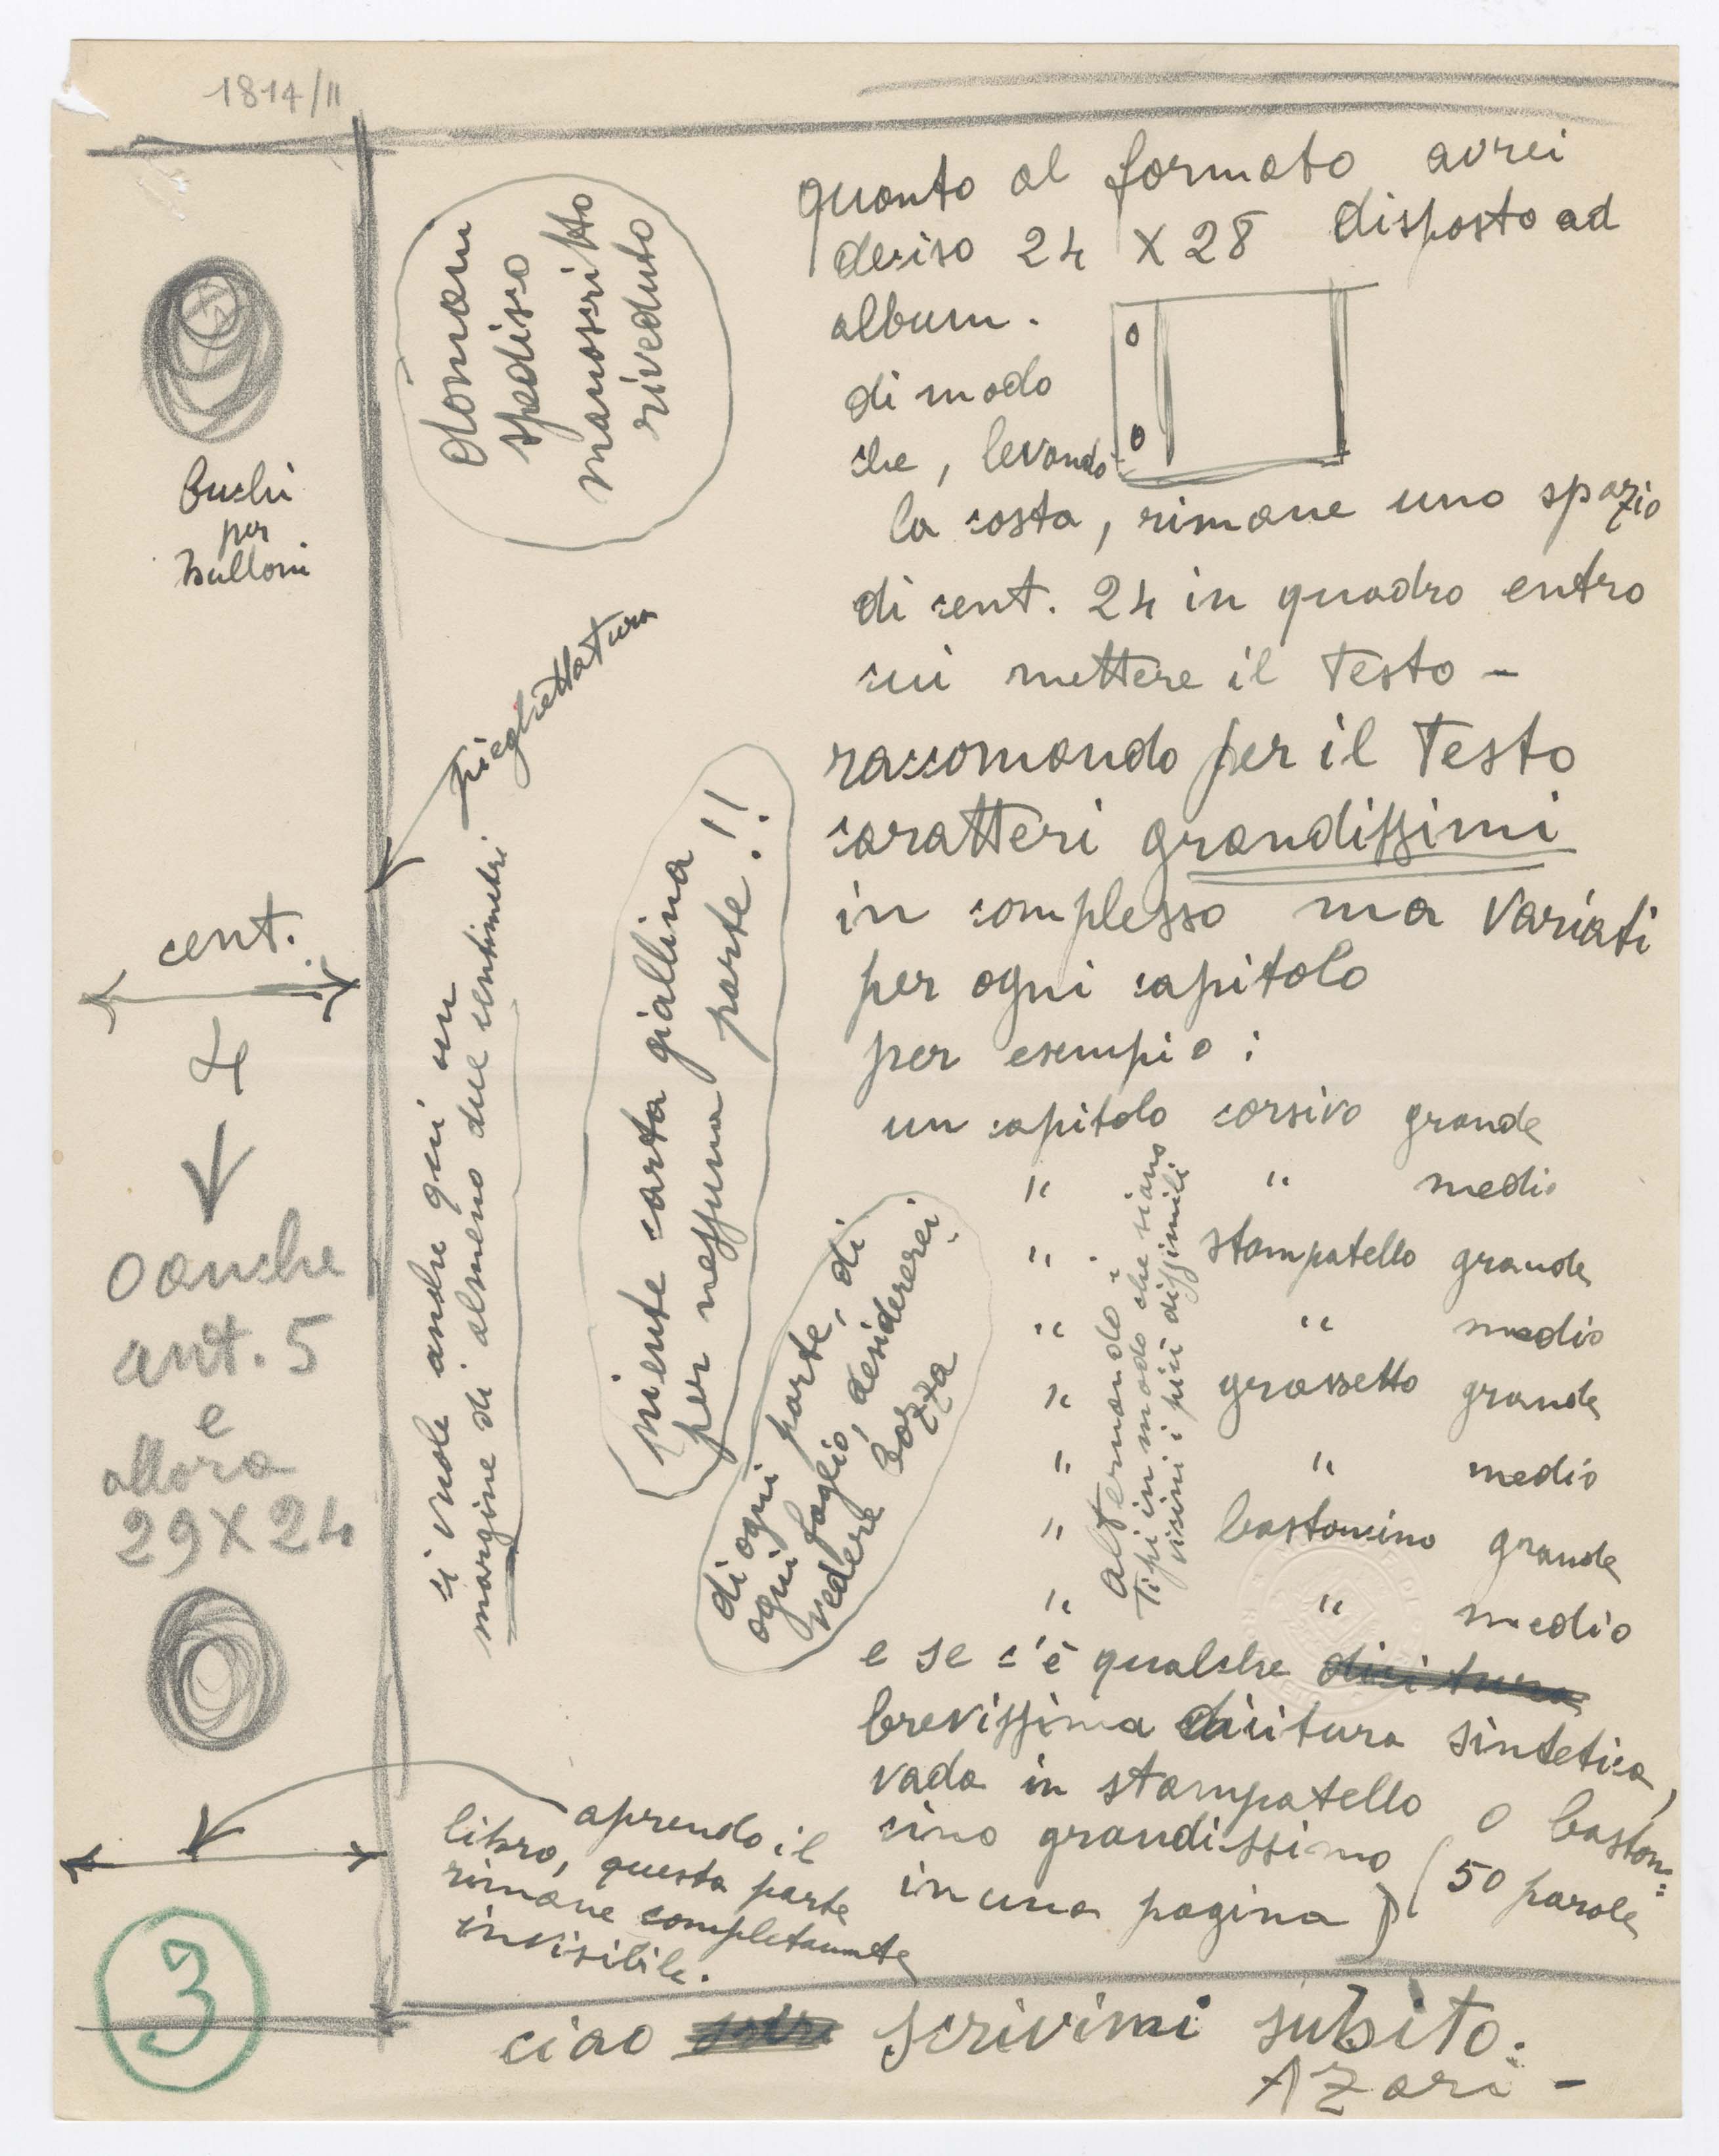 1814/II
quanto al formato avrei
deciso 24 X 28 disposto ad
album.
di modo
che, levando
la costa, rimane uno spazio
di cent. 24 in quadro entro
cui mettere il testo –
raccomando per il testo
caratteri grandissimi
in complesso ma variati
per ogni capitolo
per esempio :
un capitolo corsivo grande
" " medio
" stampatello grande
" " medio
" grassetto grande
" " medio
" bastoncino grande
" " medio
alternando i
tipi in modo che siano
vicini i più dissimili
e se c'è qualche dicitura
brevissima dicitura sintetica,
vada in stampatello o baston=
cino grandissimo
in una pagina) (50 parole
domani
spedisco
manoscritto
riveduto
buchi
per
bulloni
pieghettatura
cent.
4
o anche
cent. 5
e
allora
29 X 24
ci vuole anche qui un
margine di almeno due centimetri
niente carta giallina
per nessuna parte!!
di ogni parte, di
ogni foglio, desidererei
vedere bozza
aprendo il
libro, questa parte
rimane completamente
invisibile.
3
ciao scrivimi subito.
AZari –